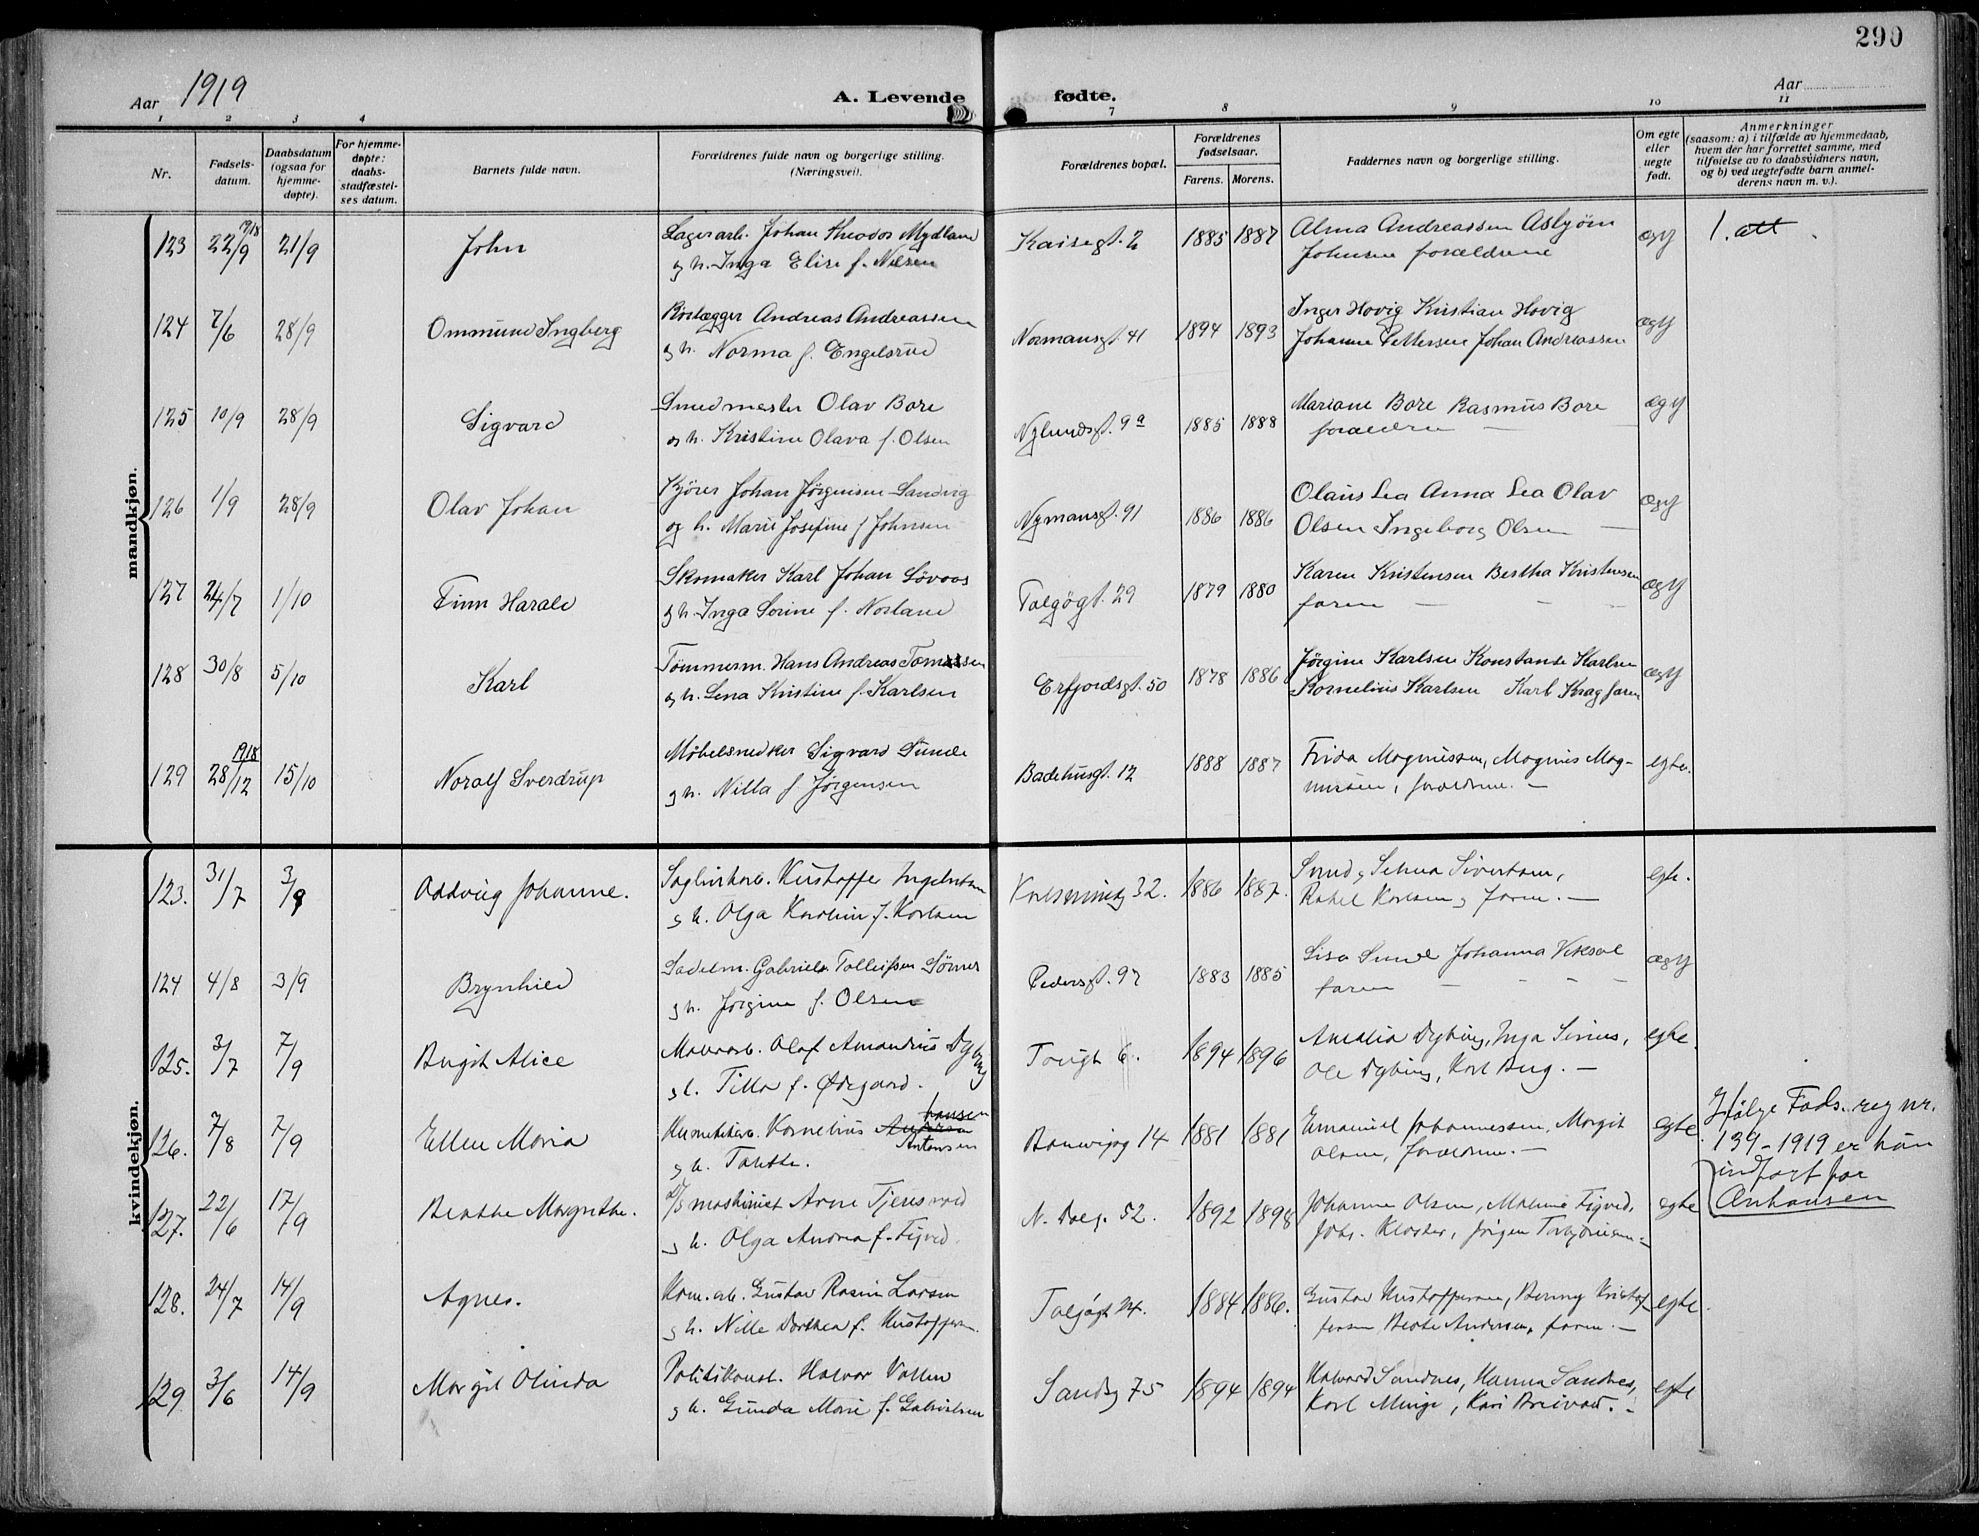 290
Aar 1919
A. Levende fødte.
Aar
1 2 3 4 7 8 9 10 11
Nr.
Fødsels-
datum.
Daabsdatum
(ogsaa for
hjemme-
døpte).
For hjemme-
døpte:
daabs-
stadfæstel-
ses datum.
Barnets fulde navn.
Forældrenes fulde navn og borgerlige stilling.
(Næringsvei).
Forældrenes bopæl.
Forældrenes
fødselsaar.
Farens. Morens.
Faddernes navn og borgerlige stilling.
Om egte
eller
uegte
født.
Anmerkninger
(saasom: a) i tilfælde av hjemmedaab,
hvem der har forrettet samme, med
tilføielse av to daabsvidners navn,
og b) ved uegtefødte barn anmel-
derens navn m. v.).
mandkjøn.
123 22/9 1918 21/9 John
Lagerarb. Johan Theodor Mydland
og h. Inga Elise f. Nilsen
1885 1887
Alma Andreassen Asbjørn
Johnsen forældrene
ægt 1. att
124 7/6 28/9 Ommund Ingberg
Andreas Andreassen
og h. Norma f. Engelsrud
Normansgt. 41 1894 1893
Inger Hovig Kristian Hovig
Johanne Pettersen Johan Andreassen
ægt
125 10/9 28/9 Sigvard
Smedmester Olav Bore
og h. Kristine Olava f. Olsen
Nylundsgt. 9a 1885 1888
Mariane Bore Rasmus Bore
forældrene
ægt
126 1/9 28/9 Olav Johan
Kjører Johan Jørgensen Sandvig
og h. Marie Josefine f Johnsen
Nymansgt. 91 1886 1886
Olaus Lea Anna Lea Olav
Olsen Ingeborg Olsen —
ægt
127 24/7 1/10 Finn Harald
Skomaker Karl Johan
og h. Inga Sorine f. Norland
Talgøgt. 29 1879 1880
Karen Kristensen Bertha Kristensen
faren — - -
ægt
128 30/8 5/10 Karl
Tømmerm. Hans Andreas Tomassen
og h. Lena Kristine f. Karlsen
Erfjordsgt. 50 1878 1886
Jørgine Karlsen Konstanse Karlsen
Kornelius Karlsen Karl Krag faren
ægt
129 28/12 1918 15/10 Noralf Sverdrup
Møbelsnedker Sigvard Sunde
og h. Nilla f Jørgensen
Badehusgt. 12 1888 1887
Frida Magnussen, Magnus Mag-
nussen, forældrene. —
egte.
kvindekjøn.
123. 31/7 3/9 Oddveig Johanne.
og h. Olga Karoline f. Karlsen
32. 1886 1887.
Rakel Karlsen, faren. —
egte.
124 4/8 3/9 Brynhild
Sadelm. Gabriel
og h. Jørgine f. Olsen
Pedersgt. 97 1883 1885
Lisa Sunde Johanna
faren — - -
ægt
125. 3/7 7/9 Birgit Alice
Malerarb. Olaf Amandus Dybing
og h. Tilla f. Ødegaard.
6. 1894 1896
Amalia Dybing, Inga Sirius,
Ole Dybing, Karl Berg. —
egte.
126. 7/8 7/9 Ellen Maria
Hermetikarb. Kornelius
Antonsen
og h. Tarette.
14 1881 1881
Emanuel Johannessen, Margit
Olsen, forældrene. —
egte.
Ifølge Føds. reg nr.
139-1919 er hun
indført for
Anhansen
127. 22/6 17/9 Berthe Margrethe.
maskinist Arne Tjeresvold
og h. Olga Andrea f. Figved.
N. Dalg. 52. 1892 1898
Johanne Olsen, Malene Figved,
Johs. Kloster, Jørgen
egte
128. 24/7 14/9 Agnes.
Kom. arb. Gustav Rasin Larsen
og h. Nille Dorthea f. Kristoffersen.
Talgøgt 24. 1884 1886.
Gustav Kristoffersen, Benny Kristof-
fersen Berte Andersen, faren. —
egte.
129 3/6 14/9 Margit Olinda
Politikonst. Halvor Vallen
og h. Gunda Marie f. Gabrielsen
Sandsg 75 1894 1894
Halvard Sandnes, Hanna Sandnes,
Karl Minge, Kari Breivad. —
egte